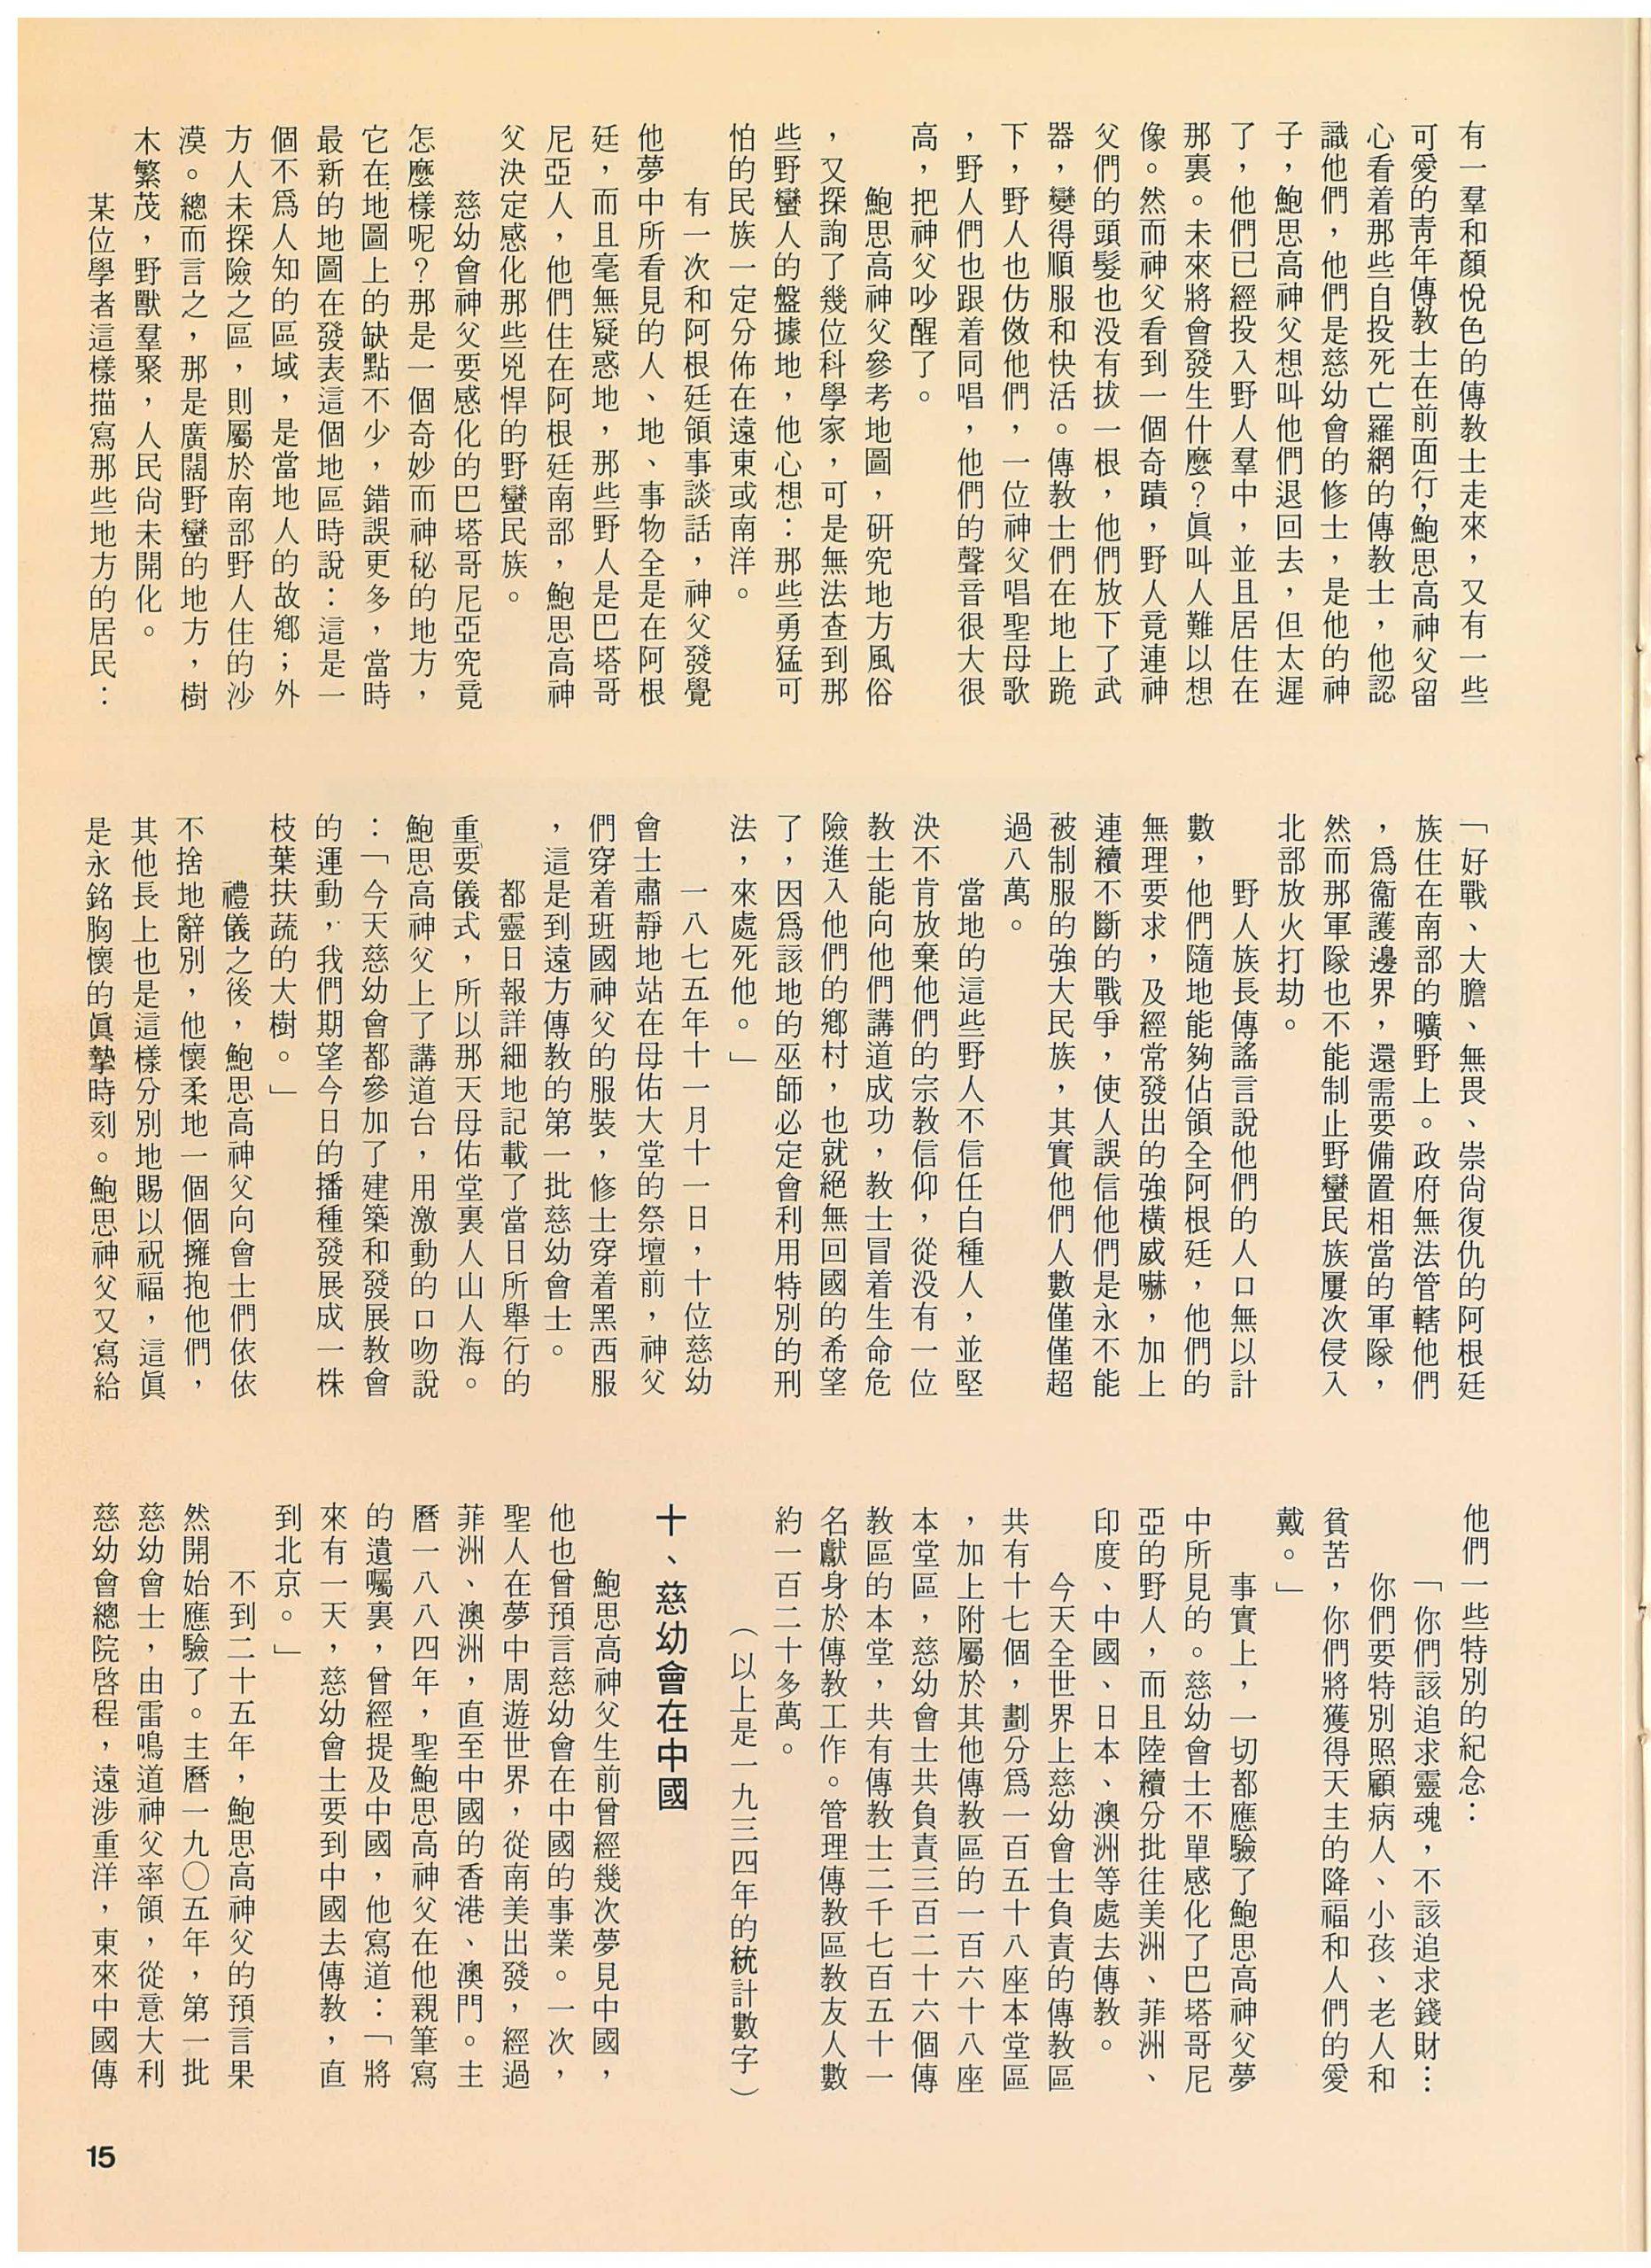 有一羣和顏悅色的傳教士走來，又有一些
可愛的靑年傳教士在前面行，鮑思高神父留
心看着那些自投死亡羅網的傳教士，他認
識他們，他們是慈幼會的修士，是他的神
子，鮑思高神父想叫他們退回去，但太遲
了，他們已經投入野人羣中，並且居住在
那裏。未來將會發生什麼？眞叫人難以想
像。然而神父看到一個奇蹟，野人竟連神
父們的頭髮也没有拔一根，他們放下了武
器，變得順服和快活。傳教士們在地上跪
下，野人也仿傚他們，一位神父唱聖母歌
，野人們也跟着同唱，他們的聲音很大很
高，把神父吵醒了。
鮑思高神父參考地圖，研究地方風俗
，又探詢了幾位科學家，可是無法查到那
些野蠻人的盤據地，他心想：那些勇猛可
怕的民族一定分佈在遠東或南洋。
有一次和阿根廷領事談話，神父發覺
他夢中所看見的人、地、事物全是在阿根
廷，而且毫無疑惑地，那些野人是巴塔哥
尼亞人，他們住在阿根廷南部，鮑思高神
父決定感化那些兇悍的野蠻民族。
慈幼會神父要感化的巴塔哥尼亞究竟
怎麼樣呢？那是一個奇妙而神秘的地方，
它在地圖上的缺點不少，錯誤更多，當時
最新的地圖在發表這個地區時說：這是一
個不爲人知的區域，是當地人的故鄉；外
方人未探險之區，則屬於南部野人住的沙
漠。總而言之，那是廣闊野蠻的地方，樹
木繁茂，野獸羣聚，人民尙未開化。
某位學者這樣描寫那些地方的居民：
「好戰、大膽、無畏、崇尙復仇的阿根廷
族住在南部的曠野上。政府無法管轄他們
，爲衞護邊界，還需要備置相當的軍隊，
然而那軍隊也不能制止野蠻民族屢次侵入
北部放火打劫。
野人族長傳謠言說他們的人口無以計
數，他們隨地能夠佔領全阿根廷，他們的
無理要求，及經常發出的強橫威嚇，加上
連續不斷的戰爭，使人誤信他們是永不能
被制服的強大民族，其實他們人數僅僅超
過八萬。
當地的這些野人不信任白種人，並堅
決不肯放棄他們的宗教信仰，從没有一位
教士能向他們講道成功，教士冒着生命危
險進入他們的鄉村，也就絕無回國的希望
了，因爲該地的巫師必定會利用特別的刑
法，來處死他。」
一八七五年十一月十一日，十位慈幼
會士肅靜地站在母佑大堂的祭壇前，神父
們穿着班國神父的服裝，修士穿着黑西服
，這是到遠方傳教的第一批慈幼會士。
都靈日報詳細地記載了當日所舉行的
重要儀式，所以那天母佑堂裏人山人海。
鮑思高神父上了講道台，用激動的口吻說
：「今天慈幼會都參加了建築和發展教會
的運動，我們期望今日的播種發展成一株
枝葉扶蔬的大樹。」
禮儀之後，鮑思高神父向會士們依依
不捨地辭別，他懷柔地一個個擁抱他們，
其他長上也是這樣分別地賜以祝福，這眞
是永銘胸懷的眞摯時刻。鮑思神父又寫給
他們一些特別的紀念：
「你們該追求靈魂，不該追求錢財…
你們要特別照顧病人、小孩、老人和
貧苦，你們將獲得天主的降福和人們的愛
戴。」
事實上，一切都應驗了鮑思高神父夢
中所見的。慈幼會士不單感化了巴塔哥尼
亞的野人，而且陸續分批往美洲、菲洲、
印度、中國、日本、澳洲等處去傳教。
今天全世界上慈幼會士負責的傳教區
共有十七個，劃分爲一百五十八座本堂區
，加上附屬於其他傳教區的一百六十八座
本堂區，慈幼會士共負責三百二十六個傳
教區的本堂，共有傳教士二千七百五十一
名獻身於傳教工作。管理傳教區教友人數
約一百二十多萬。
（以上是一九三四年的統計數字）
十、慈幼會在中國
鮑思高神父生前曾經幾次夢見中國，
他也曾預言慈幼會在中國的事業。一次，
聖人在夢中周遊世界，從南美出發，經過
菲洲、澳洲，直至中國的香港、澳門。主
曆一八八四年，聖鮑思高神父在他親筆寫
的遺囑裏，曾經提及中國，他寫道：「將
來有一天，慈幼會士要到中國去傳教，直
到北京。」
不到二十五年，鮑思高神父的預言果
然開始應驗了。主曆一九〇五年，第一批
慈幼會士，由雷鳴道神父率領，從意大利
慈幼會總院啓程，遠涉重洋，東來中國傳
15